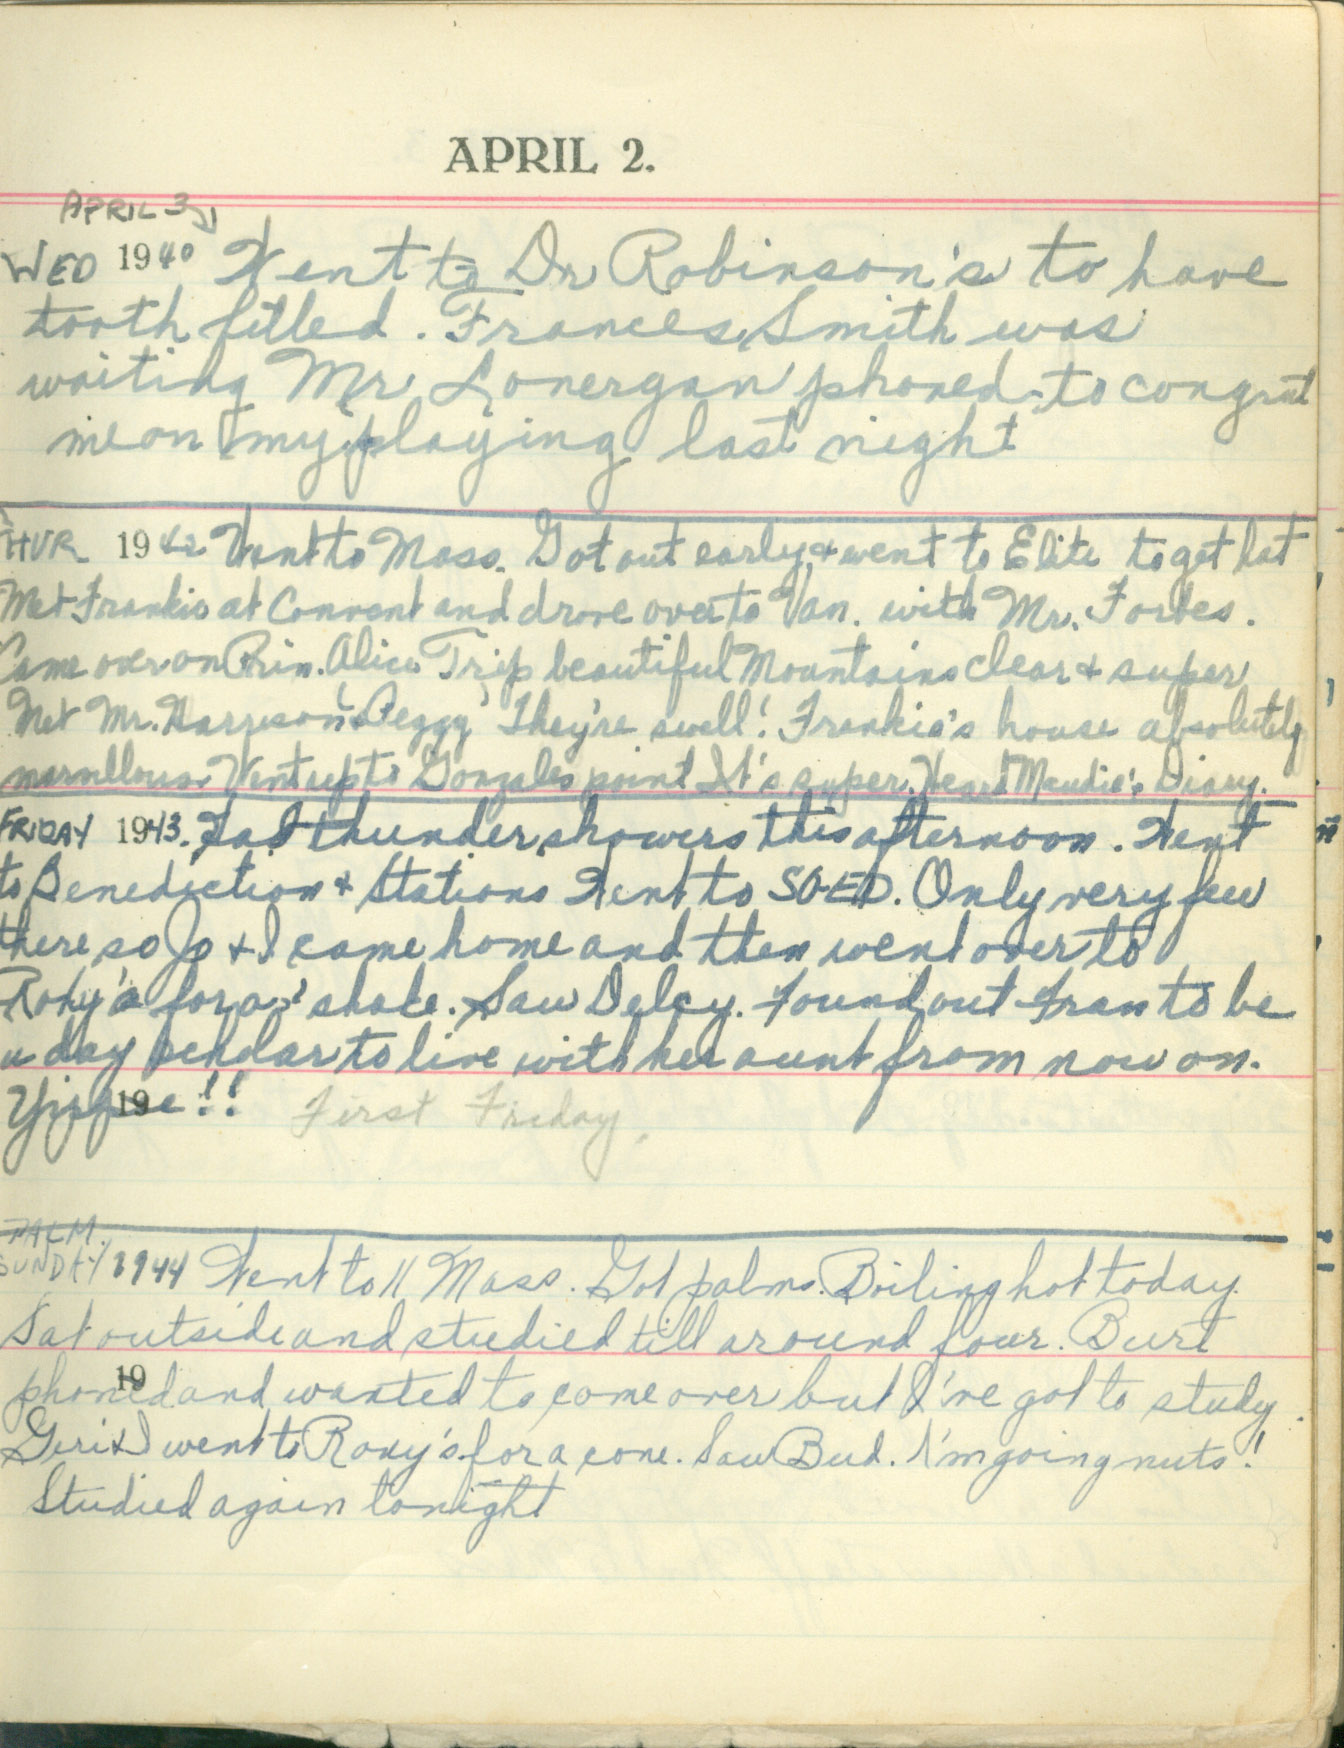 APRIL 2.
APRIL 3
WED 1940 Went to Dr Robinson's to have
tooth filled. Frances Smith was
waiting Mr Lonergan phoned to congrat
me on my playing last night
THUR 1942 Went to Mass. Got out early & went to Elite to get hat
Met Frankie at Convent and drove over to Van. with Mr. Forbes.
Came over on Prin. Alice Trip beautiful Mountains clear & super
Met Mr. Harrison & Peggy They're swell! Frankie's house absolutely
marvellous. Went up to Gonzales point It's super. Heard Maudie's Diary.
FRIDAY 1943. Had thunder showers this afternoon. Went
to Benediction & Stations Went to SO-ED. Only very few
there so Jo & I came home and then went over to
Roxy's for a shake. Saw Delcy. Found out Fran to be
a day scholar to live with her aunt from now on.
Yippee!! 19 First Friday.
PALM
SUNDAY 1944 Went to 11 Mass. Got palms. Boiling hot today.
Sat outside and studied till around four. Burt
19
phoned and wanted to come over but I've got to study.
Geri & I went to Roxy's for a cone. Saw Bud. I'm going nuts!
Studied again tonight